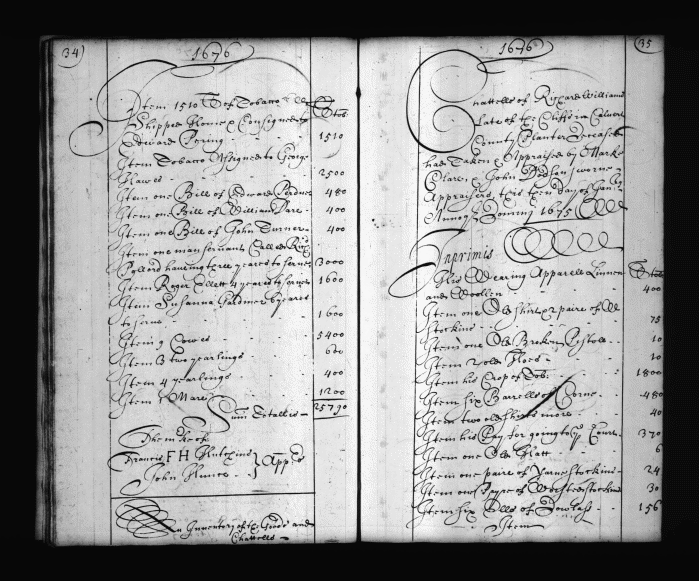 34
1676
Item 1510 of Tobacco
Shipped Home & Consigned to
Edward Pering 1510
Item Tobacco Assigned to George
Hawes 2500
Item one Bill of Edward 480
Item one Bill of William Dare 400
Item one Bill of John Turner 400
Item one man servant Called
having three yeares to serve 3000
Item Roger Ellett 4 yeares to serve 1600
Item Susanna Gardner 6 yeares
to serve 1600
Item 9 Cowes 5400
Item 3 two yearlings 600
Item 4 yearlings 400
Item 1 Mare 1200
Sum Totall is 25790
Francis F H Hutchins
John
An Inventory of the Goods and
Chattells
35
1676
Chattells of Richard Williams
late of the Clifts in Calvert
County Planter Deceased
had Taken & Appraised by Marke
Clare & John sworne
Appraisers this tenth day of
Annoq Domini 1675
Imprimis
His Wearing Apparell Linnen
and Woollen 400
Item one Old Shirt & 2 paire of
Stockins 75
Item one Old Broken Pistole 10
Item 2 old 10
Item his Crop of Tob: 1800
Item six Barrells of Corne 480
Item two old Shirts more 40
Item his Pay for going to Court 370
Item one Old 6
Item one paire of Yarne Stockins 24
Item one of Worsted Stockins 30
Item six Ells of Dowlass 156
Item